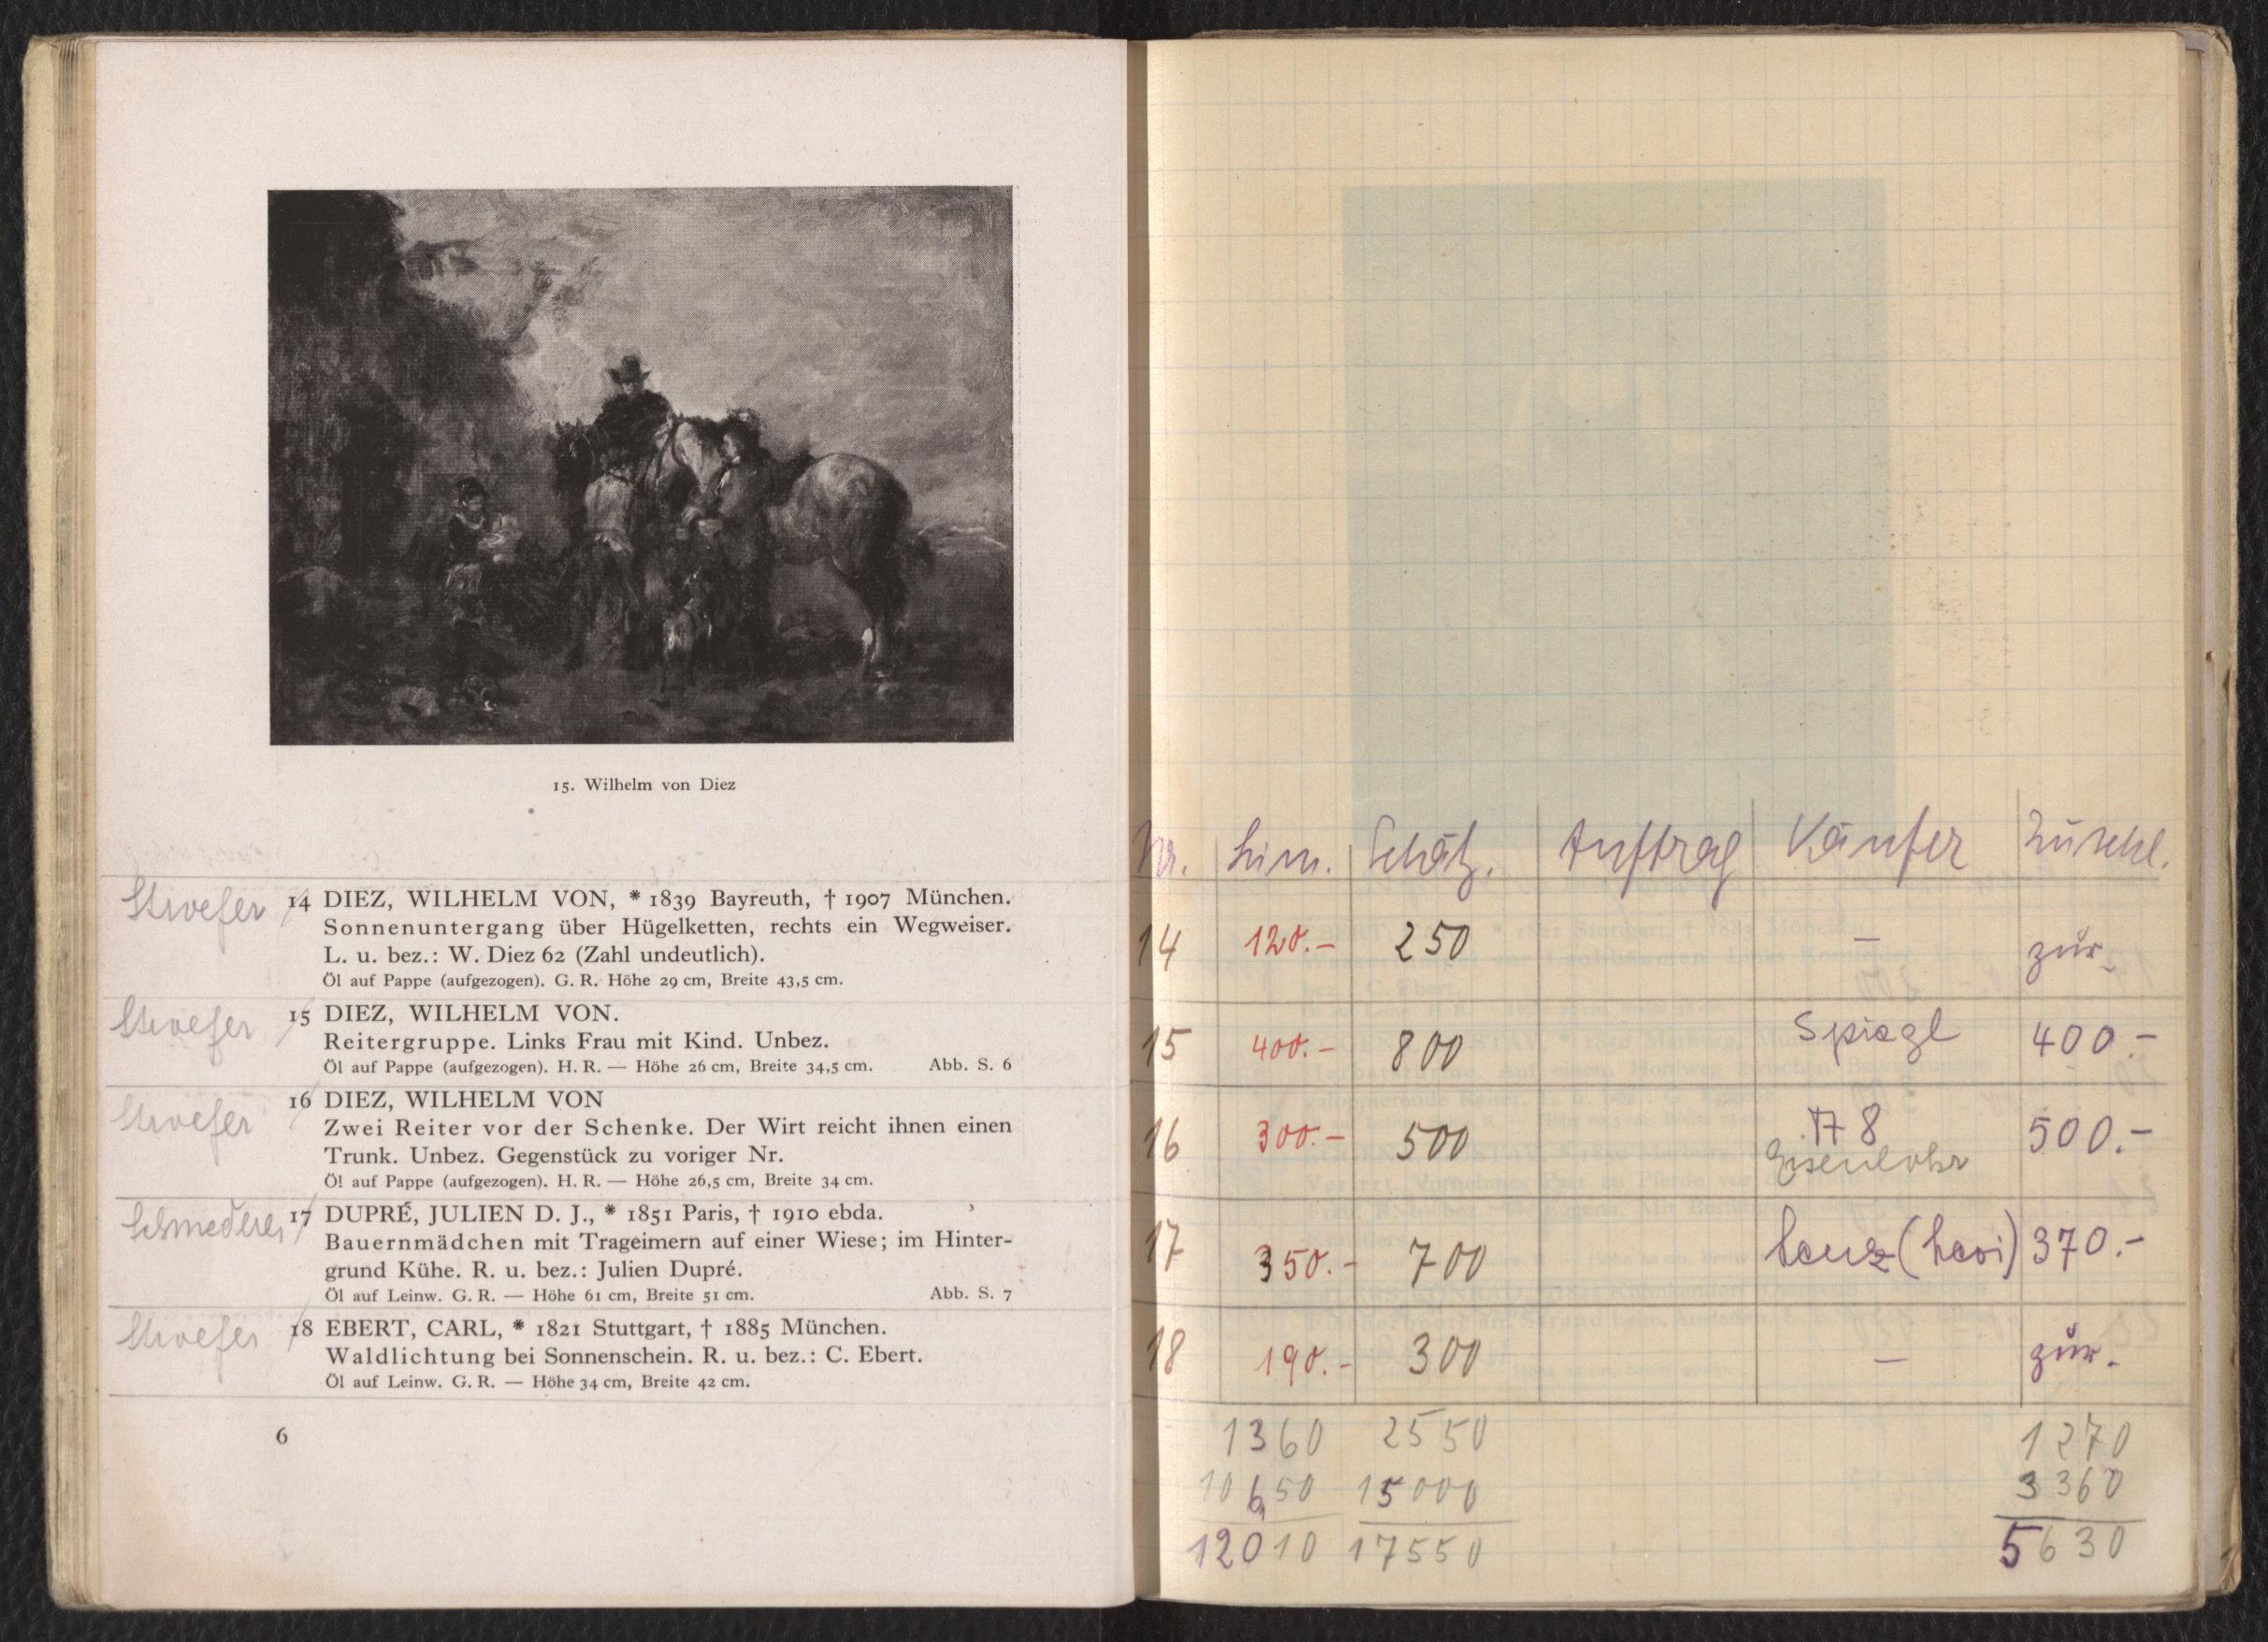 15. Wilhelm von Diez
Stroefer 14 DIEZ, WILHELM VON, * 1839 Bayreuth, † 1907 München.
Sonnenuntergang über Hügelketten, rechts ein Wegweiser.
L. u. bez.: W. Diez 62 (Zahl undeutlich).
Öl auf Pappe (aufgezogen). G. R. Höhe 29 cm, Breite 43,5 cm.
Stroefer 15 DIEZ, WILHELM VON.
Reitergruppe. Links Frau mit Kind. Unbez.
Öl auf Pappe (aufgezogen). H. R. — Höhe 26 cm, Breite 34,5 cm. Abb. S. 6
Stroefer 16 DIEZ, WILHELM VON
Zwei Reiter vor der Schenke. Der Wirt reicht ihnen einen
Trunk. Unbez. Gegenstück zu voriger Nr.
Öl auf Pappe (aufgezogen). H. R. — Höhe 26,5 cm, Breite 34 cm.
Schmederer 17 DUPRÉ, JULIEN D. J., * 1851 Paris, † 1910 ebda.
Bauernmädchen mit Trageimern auf einer Wiese; im Hinter-
grund Kühe. R. u. bez.: Julien Dupré.
Öl auf Leinw. G. R. — Höhe 61 cm, Breite 51 cm. Abb. S. 7
Stroefer 18 EBERT, CARL, * 1821 Stuttgart, † 1885 München.
Waldlichtung bei Sonnenschein. R. u. bez.: C. Ebert.
Öl auf Leinw. G. R. — Höhe 34 cm, Breite 42 cm.
6
Nr. Lim. Schätz. Auftrag Käufer Zuschl.
14 120.- 250 — zur.
15 400.- 800 Spiegl 400.-
16 300.- 500 8 500.-
Eisenlohr
17 350.- 700 370.-
18 190.- 300 — zur.
1360 2550 1270
10650 15000 3360
12010 17550 5630